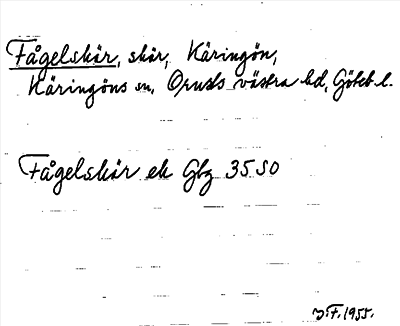 Fågelskär, skär, Käringön,
Käringöns sn, Orusts västra hd, Göteb. l.
Fågelskär ek Gbg 35 SO
J.F. 1955.